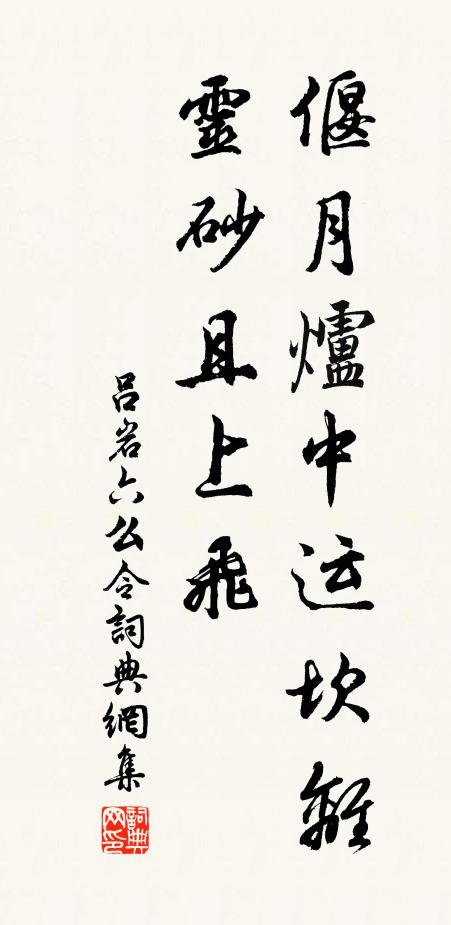 偃月爐中运坎離
靈砂且上飛
吕岩六幺令詞典網集
詞典网印